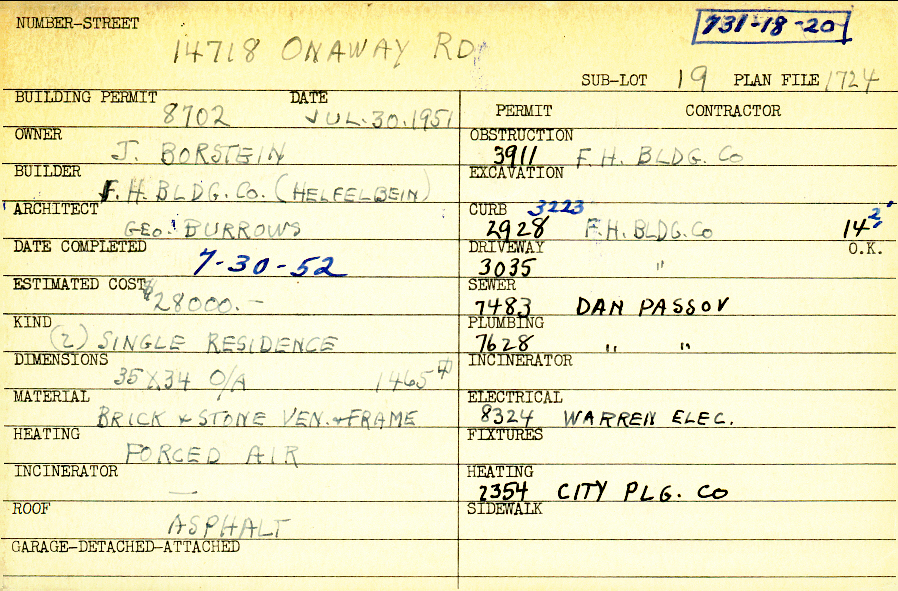 NUMBER-STREET
731-18-20
14718 ONAWAY RD.
SUB-LOT 19 PLAN FILE 1724
BUILDING PERMIT DATE
8702 JUL.30.1951
OWNER
J. BORSTEIN
BUILDER
F.H. BLDG. CO. (HELFELBEIN)
ARCHITECT
GEO. BURROWS
DATE COMPLETED
7-30-52
ESTIMATED COST
$28000.-
KIND
(2) SINGLE RESIDENCE
DIMENSIONS
35 X 34 O/A 1465
MATERIAL
BRICK & STONE VEN. & FRAME
HEATING
FORCED AIR
INCINERATOR
—
ROOF
ASPHALT
GARAGE-DETACHED-ATTACHED
PERMIT CONTRACTOR
OBSTRUCTION
3911 F.H. BLDG. CO
EXCAVATION
CURB 3223
2928 F.H. BLDG. CO 14 2'
DRIVEWAY O.K.
3035 "
SEWER
7483 DAN PASSOV
PLUMBING
7628 " "
INCINERATOR
ELECTRICAL
8324 WARREN ELEC.
FIXTURES
HEATING
2354 CITY PLG. CO
SIDEWALK